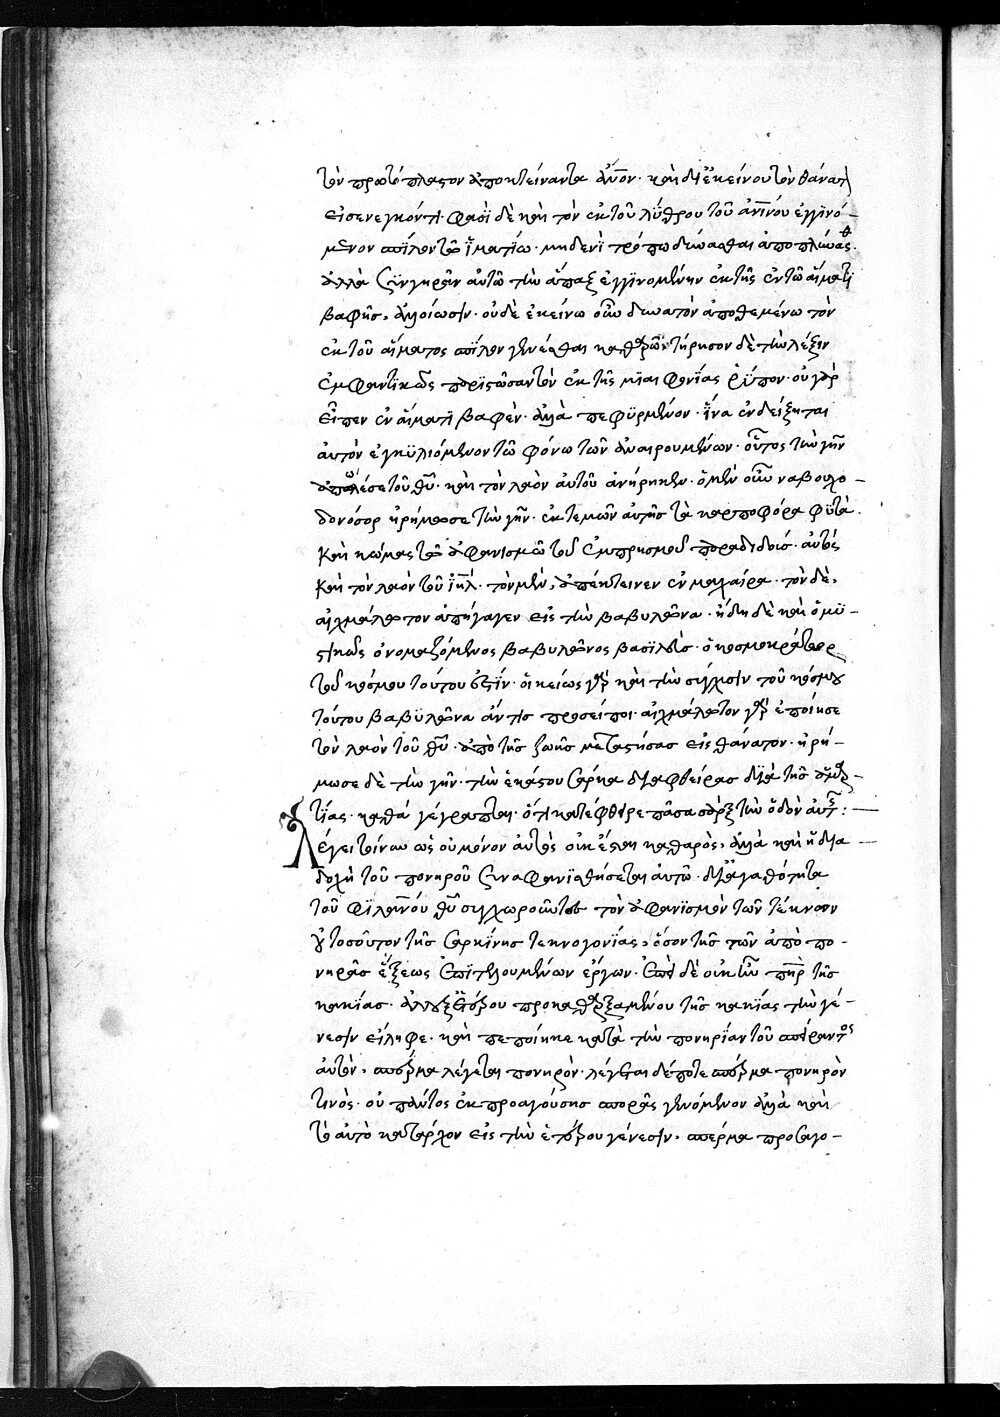 τὸν πρωτόπλαστον ἀποκτείναντα ἄνον· καὶ δι ἐκείνου τὸν θάνατον
εἰσενεγκόντι· φασὶ δὲ καὶ τὸν ἐκ τοῦ λύθρου τοῦ ἀνίνου ἐγγινό-
μενον σπίλον τῶ ἱματίω· μηδενὶ τρόπω δύνασθαι ἀποπλύνεσθαι·
ἀλλὰ συνγηρᾶν αὐτῶ τὴν ἅπαξ ἐγγινομένην ἐκ τῆς ἐν τῶ αἵματι
βαφῆς, ἀλλοίωσιν· οὐδὲ ἐκείνω οὖν δυνατὸν ἀποθεμένω τὸν
ἐκ τοῦ αἵματος σπίλον γενέσθαι καθαρῶ· τήρησον δὲ τὴν λέξιν
ἐμφαντικῶς παριστῶσαν τὸν ἐκ τῆς μιαιφονίας ῥύπον· οὐ γὰρ
εἶπεν ἐν αἵματι βαφὲν· ἀλλὰ πεφυρμένον· ἵνα ἐνδείξηται
αὐτὸν ἐγκυλιόμενον τῶ φόνω τῶν ἀναιρουμένων· οὗτος τὴν γῆν
ἀπώλεσε τοῦ θυ· καὶ τὸν λαὸν αὐτοῦ ἀνήρηκεν· ὁ μὲν οὖν ναβουχο-
δονόσορ ἠρήμωσε τὴν γῆν· ἐκτεμὼν αὐτῆς τὰ καρποφόρα φυτά·
καὶ κώμας τῶ ἀφανισμῶ τοῦ ἐμπρησμοῦ παραδιδοὺς αὐτὸς
καὶ τὸν λαὸν τοῦ ιηλ· τὸν μὲν, ἀπέκτεινεν ἐν μαχαίρα· τὸν δὲ,
αἰχμάλωτον ἀπήγαγεν εἰς τὴν βαβυλῶνα· ἤδη δὲ καὶ ὁ μυ-
στικῶς ὀνομαζόμενος βαβυλῶνος βασιλεὺς· ὁ κοσμοκράτωρ
τοῦ κόσμου τούτου ἐστὶν· οἰκείως γὰρ καὶ τὴν σύγχισιν τοῦ κόσμου
τούτου βαβυλῶνα ἄν τις προσείποι· αἰχμάλωτον γὰρ ἐποίησε
τὸν λαὸν τοῦ θυ· ἀπὸ τῆς ζωῆς μεταστήσας εἰς θάνατον· ἠρή-
μωσε δὲ τὴν γῆν· τὴν ἑκάστου σάρκα διαφθείρας διὰ τῆς ἁμαρ-
τίας· καθὰ γέγραπται· ὅτι κατέφθειρε πᾶσα σὰρξ τὴν ὁδὸν αὐτῆς:
Λέγει τοίνυν ὡς οὐ μόνον αὐτὸς οὐκ ἔσται καθαρὸς, ἀλλὰ καὶ ἡ δια
δοχὴ τοῦ πονηροῦ συναφανισθήσεται αὐτῶ· διὰ ἀγαθότητα
τοῦ φιλανου θυ συγχωροῦντος τὸν ἀφανισμὸν τῶν τέκνων
οὐ τοσοῦτον τῆς σαρκίνης τεκνογονίας, ὅσον τῆς τῶν ἀπὸ πο-
νηρᾶς ἕξεως ἐπιτελουμένων ἔργων· ἐπεὶ δὲ οὐκ ἦν πηρ τῆς
κακίας· ἀλλ' ἐξ ἑτέρου προκαθαρξαμένου τῆς κακίας τὴν γέ-
νεσιν εἴληφε· καὶ πεποίηκε κατὰ τὴν πονηρίαν τοῦ σπείραντος
αὐτὸν, σπέρμα λέγεται πονηρὸν· λέγεται δέ ποτε σπέρμα πονηρὸν
τινὸς· οὐ πάντως ἐκ προαγούσης σπορᾶς γενόμενον ἀλλὰ καὶ
τὸ αὐτὸ κατάρχον εἰς τὴν ἑτέρου γένεσιν, σπέρμα προσαγο-